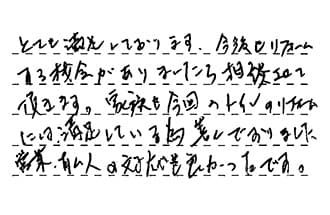 とても満足しております。今後もリフォーム
する機会がありましたら相談させて
頂きます。家族も今回のトイレのリフォーム
には満足していると喜んでおりました
営業、職人の対応が良かったです。